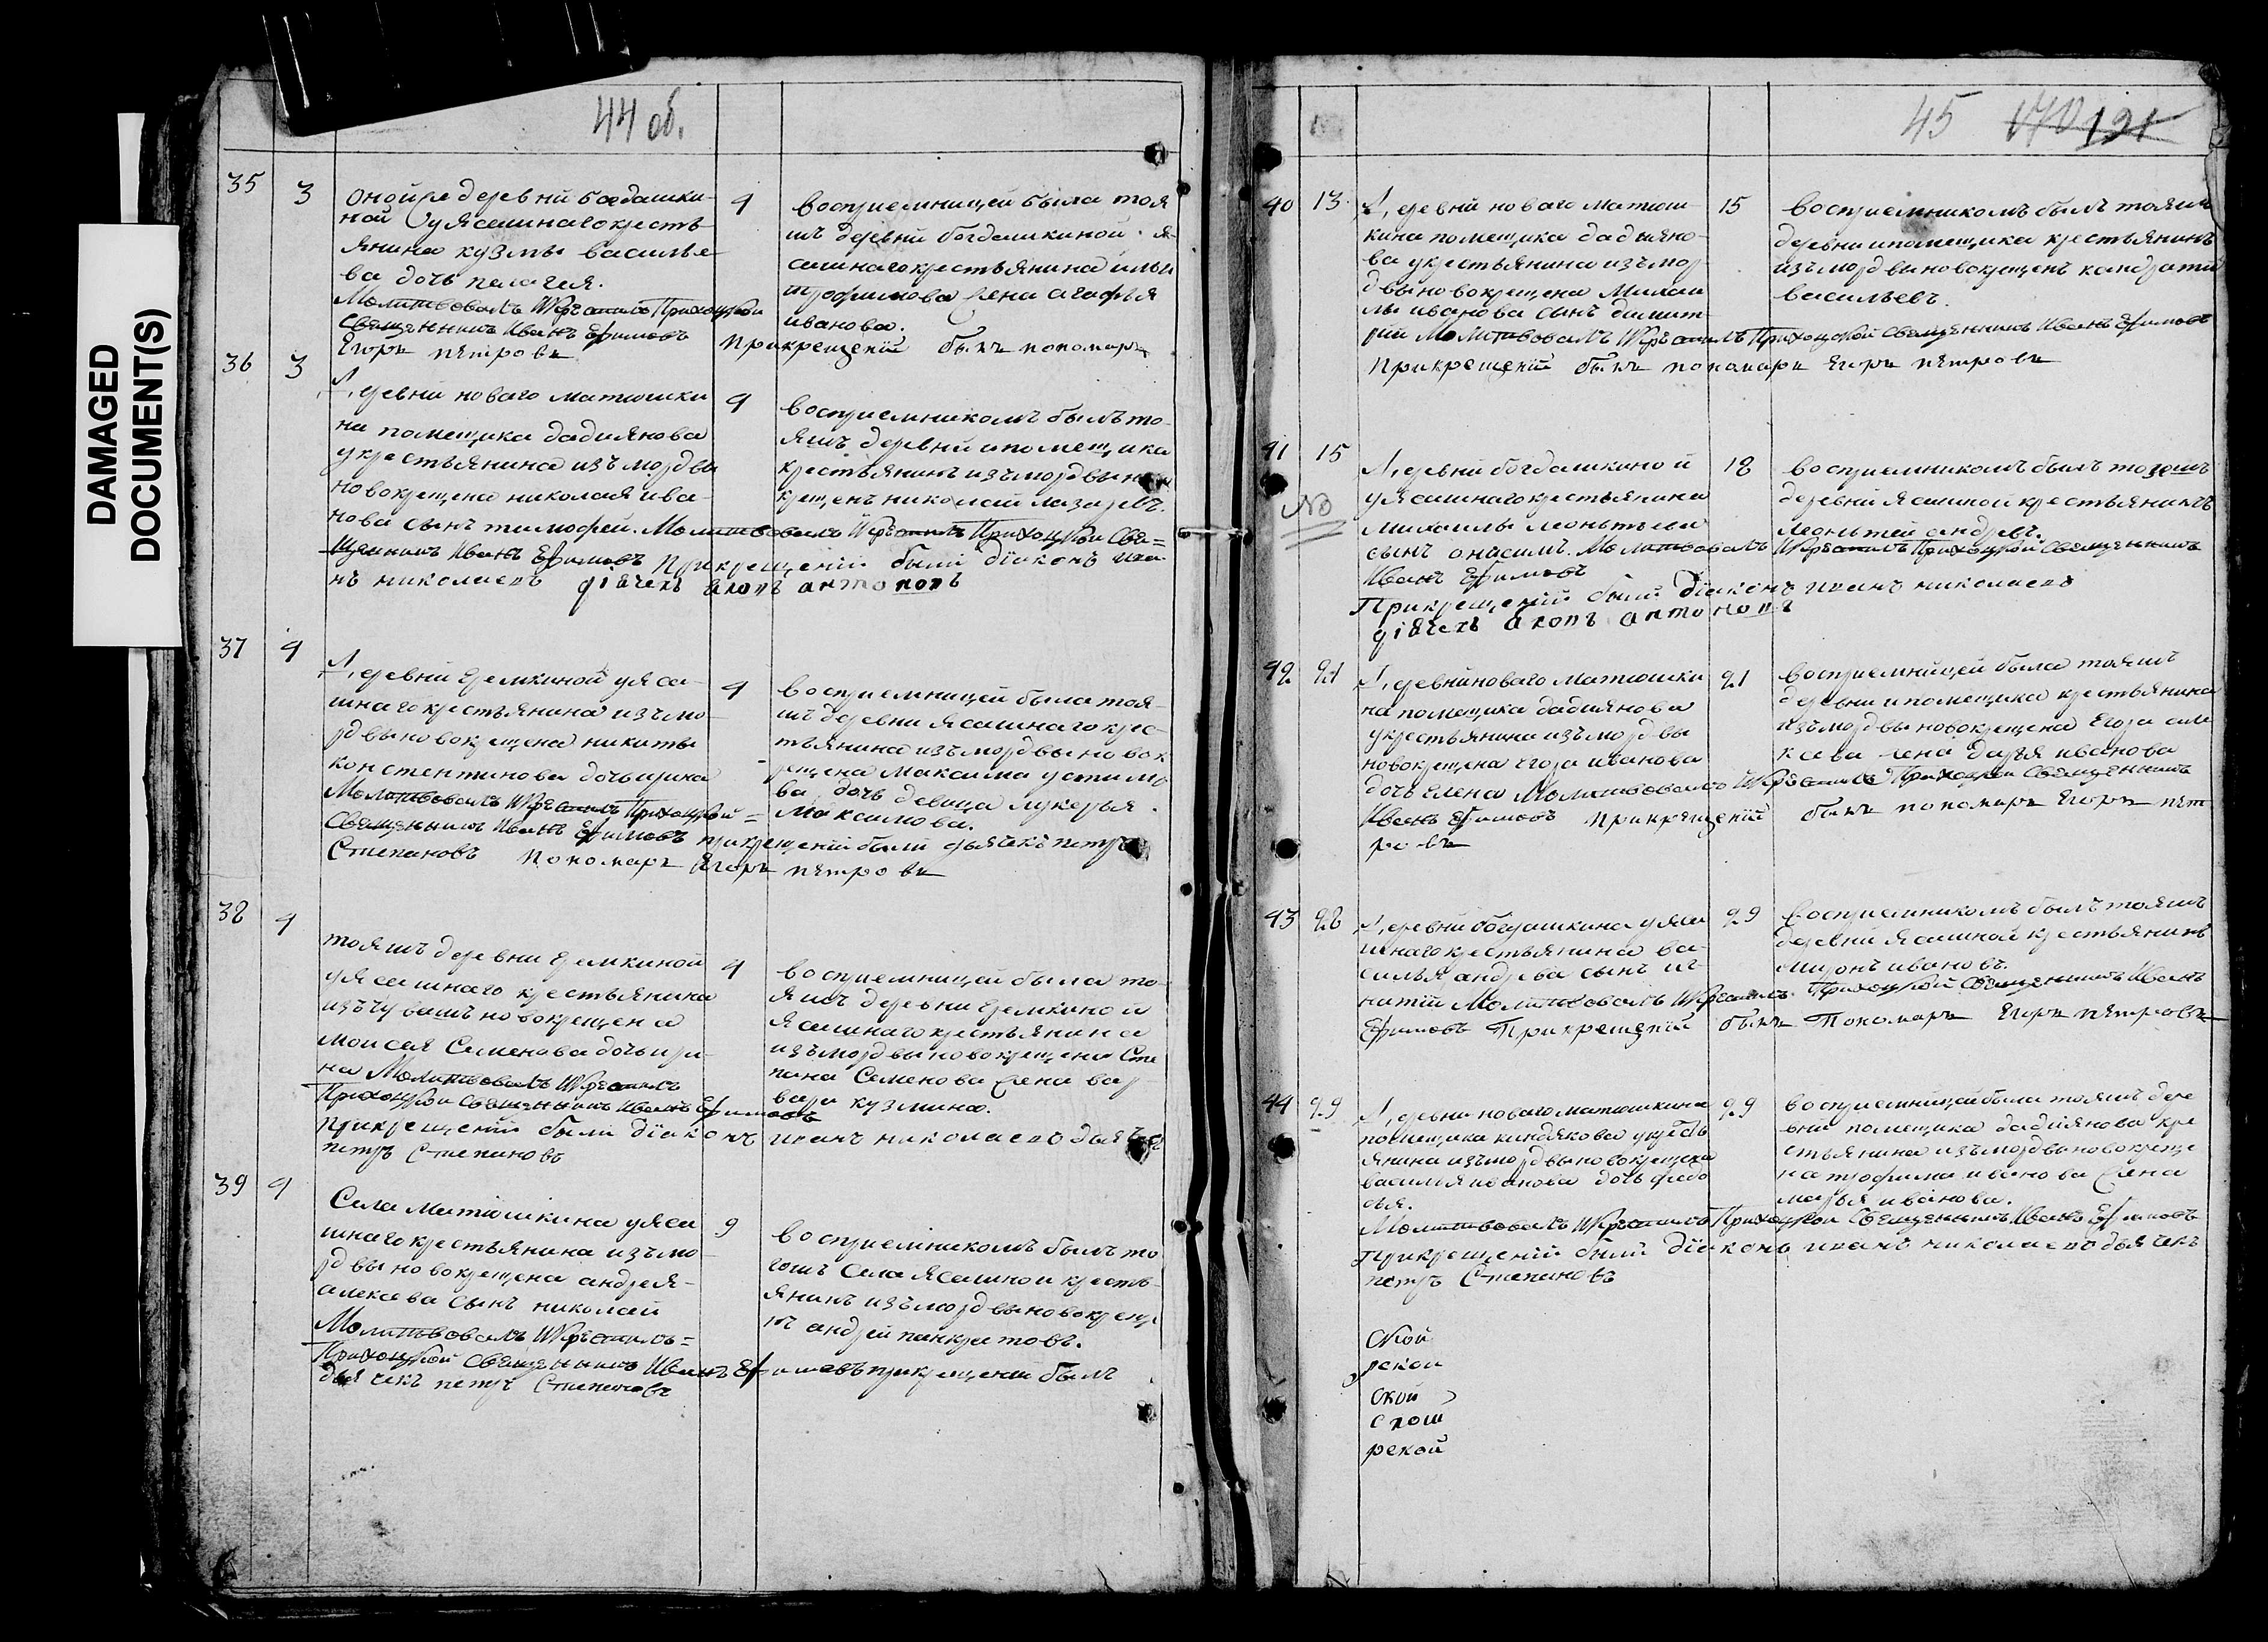 DAMAGED
DOCUMENT(S)
44 об.
35 3
оной же деревни богдашки-
ной у ясашнаго кресть
янина кузмы василье
ва дочь пелагея.
Молитвовалъ и крестилъ Приходской
Священникъ Иванъ Ефимовъ
При крещении былъ пономарь
Егоръ петровъ
4
восприемницей была тоя
жъ деревни богдашкиной я-
сашнаго крестьянина ильи
трофимова жена агафья
иванова.
36 3
Деревни новаго матюшки
на помещика дадиянова
у крестьянина изъ мордвы
новокрещена николая ива-
нова сынъ тимофей. Молитвовалъ и крестилъ Приходской Свя=
щенникъ Иванъ Ефимовъ При крещении были диаконъ ива
нъ николаевъ
4
восприемникомъ былъ то-
яжъ деревни и помещика
крестьянинъ изъ мордвы но
крещенъ николай лазаревъ.
37 4
Деревни Еремкиной у яса-
шнаго крестьянина изъ мо-
рдвы новокрещена никиты
констентинова дочь ирина
Молитвовалъ и крестилъ Приходской =
Священникъ Иванъ Ефимовъ при крещении были дьячекъ петръ
Степановъ пономарь Егоръ петровъ
4
восприемницей была тоя-
жъ деревни ясашнаго крес-
тьянина изъ мордвы новок
рещена максима устимо
ва дочь девица лукерья
максимова.
38 4
тояжъ деревни Еремкиной
у ясашнаго крестьянина
изъ чувашъ новокрещена
моисея Семенова дочь ири-
на Молитвовалъ и крестилъ
Приходской Священникъ Иванъ Ефимовъ
при крещении были диаконъ иванъ николаевъ дьячекъ
петръ Степановъ
4
восприемницей была то-
яжъ деревни Еремкиной
ясашнаго крестьянина
изъ мордвы новокрещена Сте
пана Семенова жена вар-
вара кузмина.
39 4
Села Матюшкина у яса
шнаго крестьянина изъ мо-
рдвы новокрещена андрея-
алексева сынъ николай
Молитвовалъ и крестилъ=
Приходской Священникъ Иванъ Ефимовъ при крещении былъ
дьячекъ петръ Степановъ
9
восприемникомъ былъ то
гожъ Села ясашной кресть-
янинъ изъ мордвы новокреще
нъ андрей панкратовъ.
45 170 121
40 13
Деревни новаго матюш-
кина помещика дадияно-
ва у крестьянина изъ мор
двы новокрещена Михаи
лы иванова сынъ димит
рий Молитвовалъ и крестилъ Приходской Священникъ Иванъ Ефимовъ
При крещении былъ пономарь Егоръ петровъ
15
восприемникомъ былъ тояжъ
деревни и помещика крестьянинъ
изъ мордвы новокрещенъ кандратий
васильевъ.
41 15
No
Деревни богдашкиной
у ясашнаго крестьянина
михайлы леонтьева
сынъ онисимъ. Молитвовалъ и крестилъ Приходской Священникъ
Иванъ Ефимовъ
При крещении были диаконъ иванъ николаевъ
18
восприемникомъ былъ тоя жъ
деревни ясашной крестьянинъ
леонтей андревъ.
42 21
Деревни новаго матюшки
на помещика дадиянова
у крестьянина изъ мордвы
новокрещена егора иванова
дочь елена Молитвовалъ и крестилъ Приходской Священникъ
Иванъ Ефимовъ при крещении былъ пономарь Егоръ пет
ровъ
21
восприемницей была тояжъ
деревни и помещика крестьянина
изъ мордвы новокрещена Егора але
ксева жена дарья иванова
43 28
Деревни богдашкина у яса
шнаго крестьянина ва-
силья андрева сынъ иг-
натий Молитвовалъ и крестилъ Приходской Священникъ Иванъ
Ефимовъ При крещении былъ Пономарь Егоръ петровъ
29
восприемникомъ былъ тояжъ
деревни ясашной крестьянинъ
миронъ ивановъ.
44 29
Деревни новаго матюшкина
помещика киндякова у кресть
янина изъ мордвы новокрещена
василия иванова дочь федо
сья.
Молитвовалъ и крестилъ Приходской Священникъ Иванъ Ефимовъ
При крещении были диаконъ иванъ николаевъ дьячекъ
петръ Степановъ
29
восприемницей была тояжъ дере
вни помещика дадиянова кре
стьянина изъ мордвы новокреще
на трофима иванова жена
марья иванова.
Ской
рской
Ской
рской